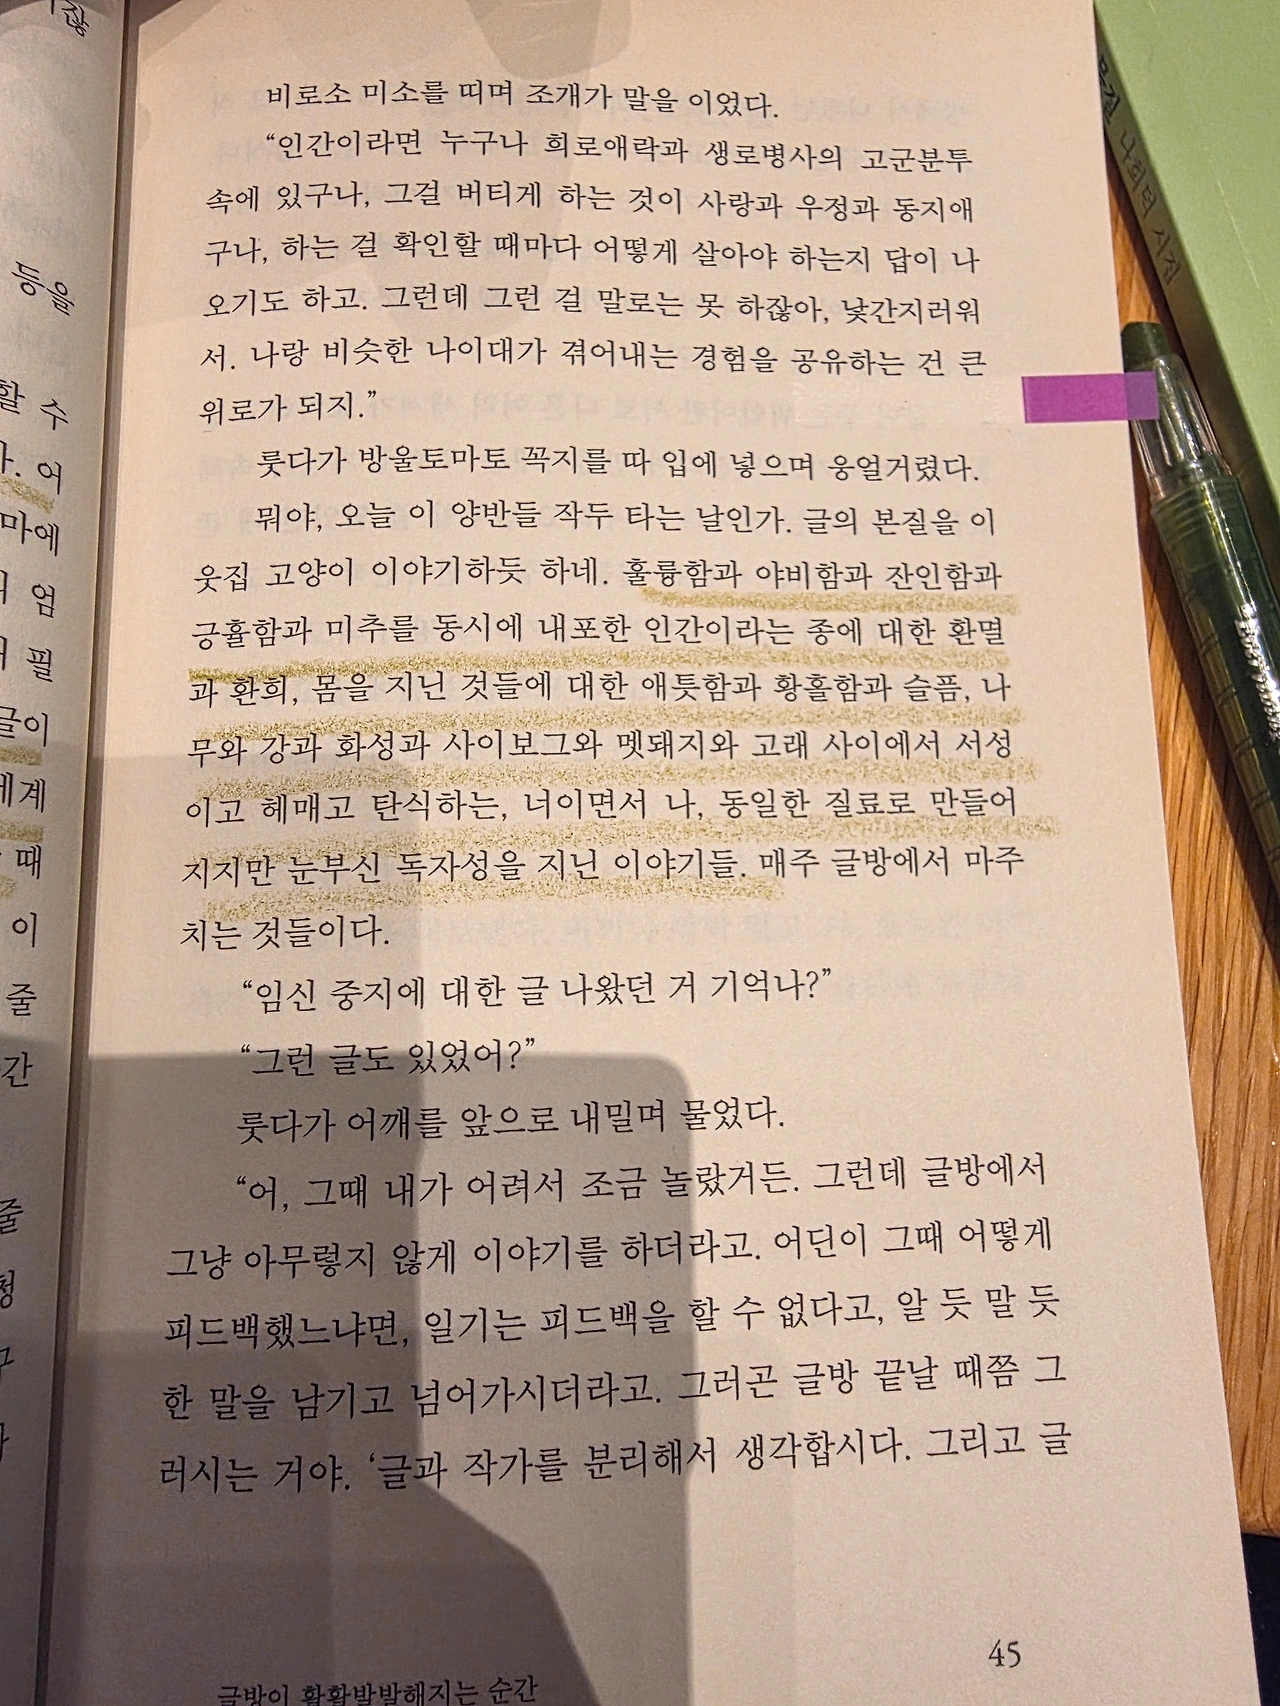 등을
할 수
어
마에
엄
필
글이
세계
때
이
줄
간
줄
비로소 미소를 띠며 조개가 말을 이었다.
“인간이라면 누구나 희로애락과 생로병사의 고군분투
속에 있구나, 그걸 버티게 하는 것이 사랑과 우정과 동지애
구나, 하는 걸 확인할 때마다 어떻게 살아야 하는지 답이 나
오기도 하고. 그런데 그런 걸 말로는 못 하잖아, 낯간지러워
서. 나랑 비슷한 나이대가 겪어내는 경험을 공유하는 건 큰
위로가 되지.”
룻다가 방울토마토 꼭지를 따 입에 넣으며 웅얼거렸다.
뭐야, 오늘 이 양반들 작두 타는 날인가. 글의 본질을 이
웃집 고양이 이야기하듯 하네. 훌륭함과 야비함과 잔인함과
긍휼함과 미추를 동시에 내포한 인간이라는 종에 대한 환멸
과 환희, 몸을 지닌 것들에 대한 애틋함과 황홀함과 슬픔, 나
무와 강과 화성과 사이보그와 멧돼지와 고래 사이에서 서성
이고 헤매고 탄식하는, 너이면서 나, 동일한 질료로 만들어
지지만 눈부신 독자성을 지닌 이야기들. 매주 글방에서 마주
치는 것들이다.
“임신 중지에 대한 글 나왔던 거 기억나?”
“그런 글도 있었어?”
룻다가 어깨를 앞으로 내밀며 물었다.
“어, 그때 내가 어려서 조금 놀랐거든. 그런데 글방에서
그냥 아무렇지 않게 이야기를 하더라고. 어딘이 그때 어떻게
피드백했느냐면, 일기는 피드백을 할 수 없다고, 알 듯 말 듯
한 말을 남기고 넘어가시더라고. 그러곤 글방 끝날 때쯤 그
러시는 거야. ‘글과 작가를 분리해서 생각합시다. 그리고 글
45
글방이 활활발발해지는 순간
나희덕 시집